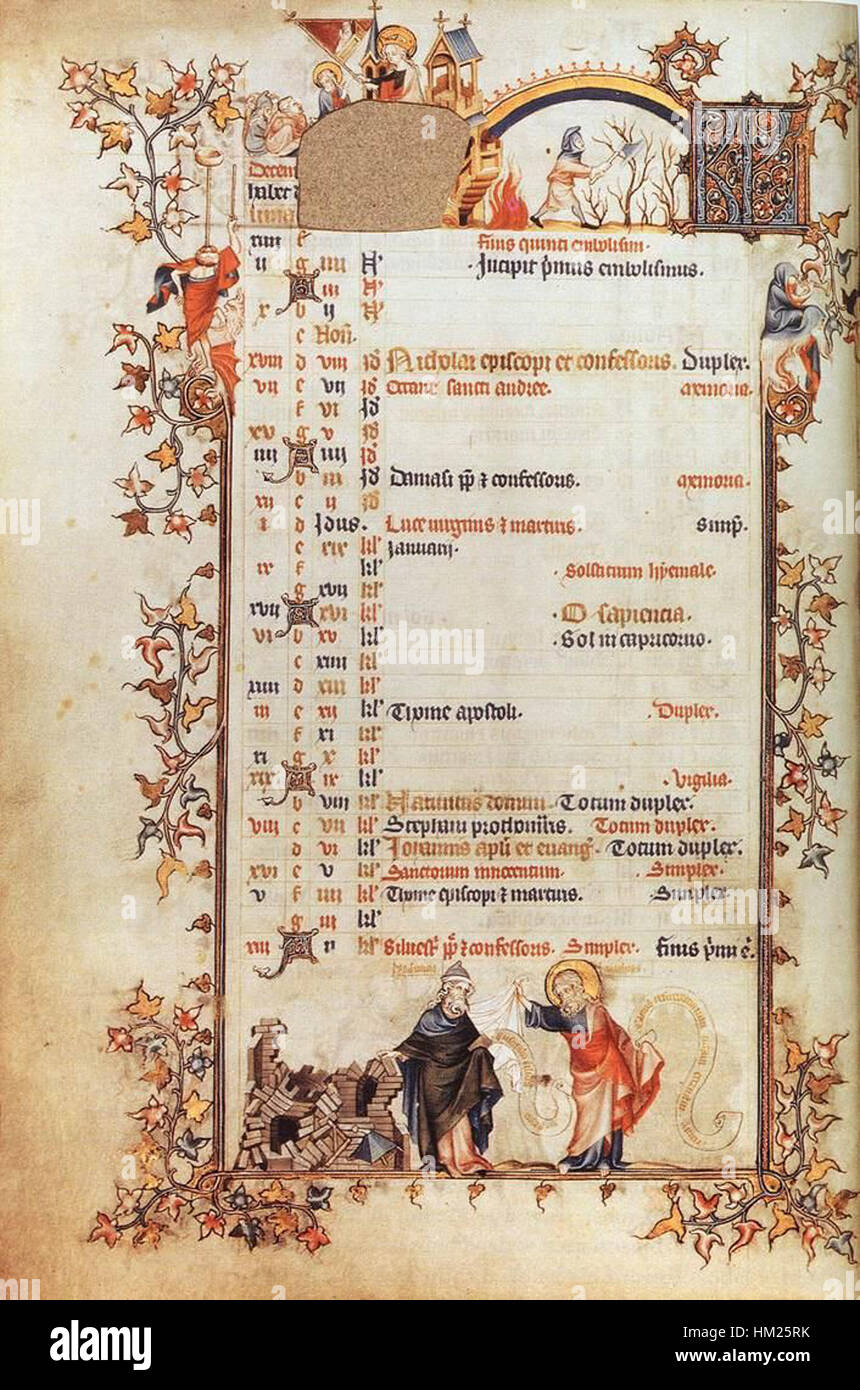 Decem
habet
luna
xiii f finis quinti embolismi.
ii g iiii N' . Incipit primus embolismus.
A iii N'
x b ii N'
c Non.
xviii d viii Id Nicholai episcopi et confessoris. Duplex.
vii e vii Id Octave sancti andree. memoria.
f vi Id
xv g v Id
iiii A iiii Id
b iii Id Damasi pp & confessoris. memoria.
xii c ii Id
i d Idus. Lucie virginis & martiris. simp.
e xix kl' Januarii.
ix f kl' . Solsticium hyemale.
g xvii kl'
xvii A xvi kl' . O sapiencia.
vi b xv kl' . Sol in capricorno.
c xiiii kl'
xiiii d xiii kl'
iii e xii kl' Thome apostoli. . Duplex.
f xi kl'
xi g x kl'
xix A ix kl' . Vigilia.
b viii kl' Nativitas domini. Totum duplex.
viii c vii kl' Stephani prothomris. Totum duplex.
d vi kl' Johannis apli et evang. Totum duplex.
xvi e v kl' Sanctorum innocentum. . Simplex.
v f iiii kl' Thome episcopi & martiris. . Simplex.
g iii kl'
xiii A ii kl' Silvest' pp & confessoris. Simplex. finis primi e'.
alamy
Image ID: HM25RK
www.alamy.com